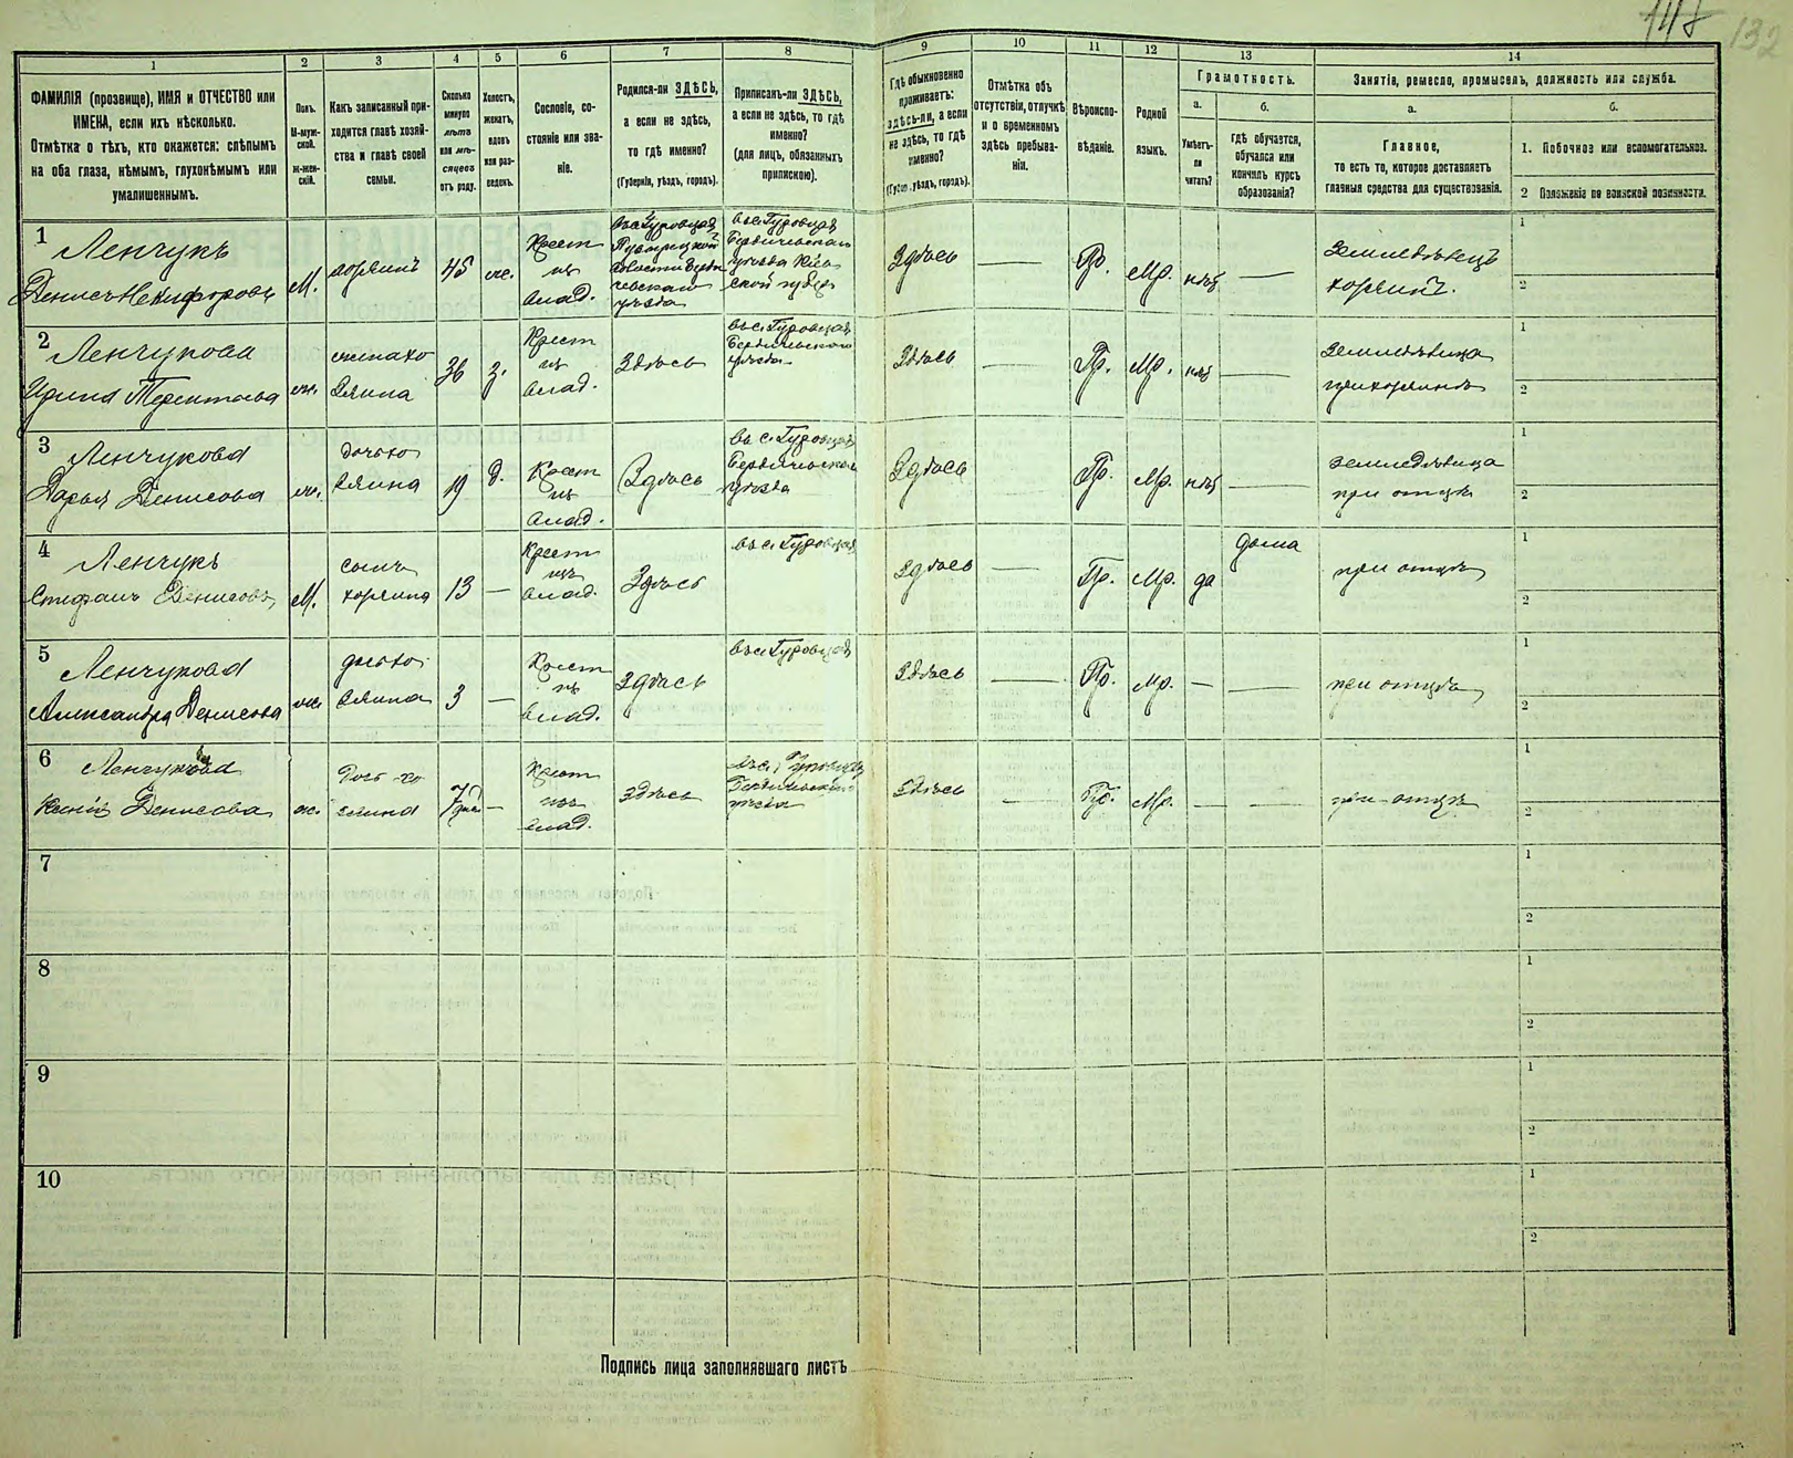 118 132
1 2 3 4 5 6 7 8 9 10 11 12 13 14
ФАМИЛІЯ (прозвище), ИМЯ и ОТЧЕСТВО или
ИМЕНА, если ихъ нѣсколько.
Отмѣтка о тѣхъ, кто окажется: слѣпымъ
на оба глаза, нѣмымъ, глухонѣмымъ или
умалишеннымъ.
Полъ.
М-муж-
ской.
Ж-жен-
скій.
Какъ записанный при-
ходится главѣ хозяй-
ства и главѣ своей
семьи.
Сколько
минуло
лѣтъ
или мѣ-
сяцевъ
отъ роду.
Холостъ,
женатъ,
вдовъ
или раз-
веденъ.
Сословіе, со-
стояніе или зва-
ніе.
Родился-ли ЗДѢСЬ,
а если не здѣсь,
то гдѣ именно?
(Губернія, уѣздъ, городъ).
Приписанъ-ли ЗДѢСЬ,
а если не здѣсь, то гдѣ
именно?
(для лицъ, обязанныхъ
припискою).
Гдѣ обыкновенно
проживаетъ:
здѣсь-ли, а если
не здѣсь, то гдѣ
именно?
(Губерн., уѣздъ, городъ).
Отмѣтка объ
отсутствіи, отлучкѣ
и о временномъ
здѣсь пребыва-
ніи.
Вѣроиспо-
вѣданіе.
Родной
языкъ.
Грамотность.
а.
Умѣетъ-
ли
читать?
б.
Гдѣ обучается,
обучался или
кончилъ курсъ
образованія?
Занятіе, ремесло, промыселъ, должность или служба.
а.
Главное,
то есть то, которое доставляетъ
главныя средства для существованія.
б.
1. Побочное или вспомогательное.
2 Положеніе по воинской повинности.
1 Ленчукъ
Денисъ Никифоровъ
М.
хозяинъ
45
же.
Крест
из
влад.
въ с. Туровцах
въ с. Туровцах
Бердичевскаго
уѣзда Кіев
ской губер
Здѣсь
—
Пр.
Мр.
нѣт
—
Земледѣлецъ
хозяинъ.
1
2
2 Ленчукова
Ирина Терентьева
ж.
жена хо
зяина
36
з.
Крест
из
влад.
Здѣсь
въ с. Туровцах
Бердичевского
уѣзда
Здѣсь
—
Пр.
Мр.
нѣт
—
Земледѣлица
при хозяинѣ
1
2
3 Ленчукова
Дарья Денисова
ж.
дочь хо
зяина
19
д.
Крест
из
влад.
Здѣсь
въ с. Туровцах
Бердичевскаго
уѣзда
Здѣсь
—
Пр.
Мр.
нѣт
—
земледѣлица
при отцѣ
1
2
4 Ленчукъ
Стефанъ Денисовъ
М.
сынъ
хозяина
13
—
Крест
изъ
влад.
Здѣсь
въ с. Туровцах
Здѣсь
—
Пр.
Мр.
да
дома
при отцѣ
1
2
5 Ленчукова
Александра Денисова
ж.
дочь хо
зяина
3
—
Крест
из
влад.
Здѣсь
въ с. Туровцах
Здѣсь
—
Пр.
Мр.
—
—
при отцѣ
1
2
6 Ленчукова
Ксенія Денисова
ж.
Дочь хо
зяина
7 дней
—
Крест
изъ
влад.
здѣсь
въ с. Туровцах
Бердичевскаго
уѣзда
Здѣсь
—
Пр.
Мр.
—
—
при отцѣ
1
2
7
1
2
8
1
2
9
1
2
10
1
2
Подпись лица заполнявшаго листъ